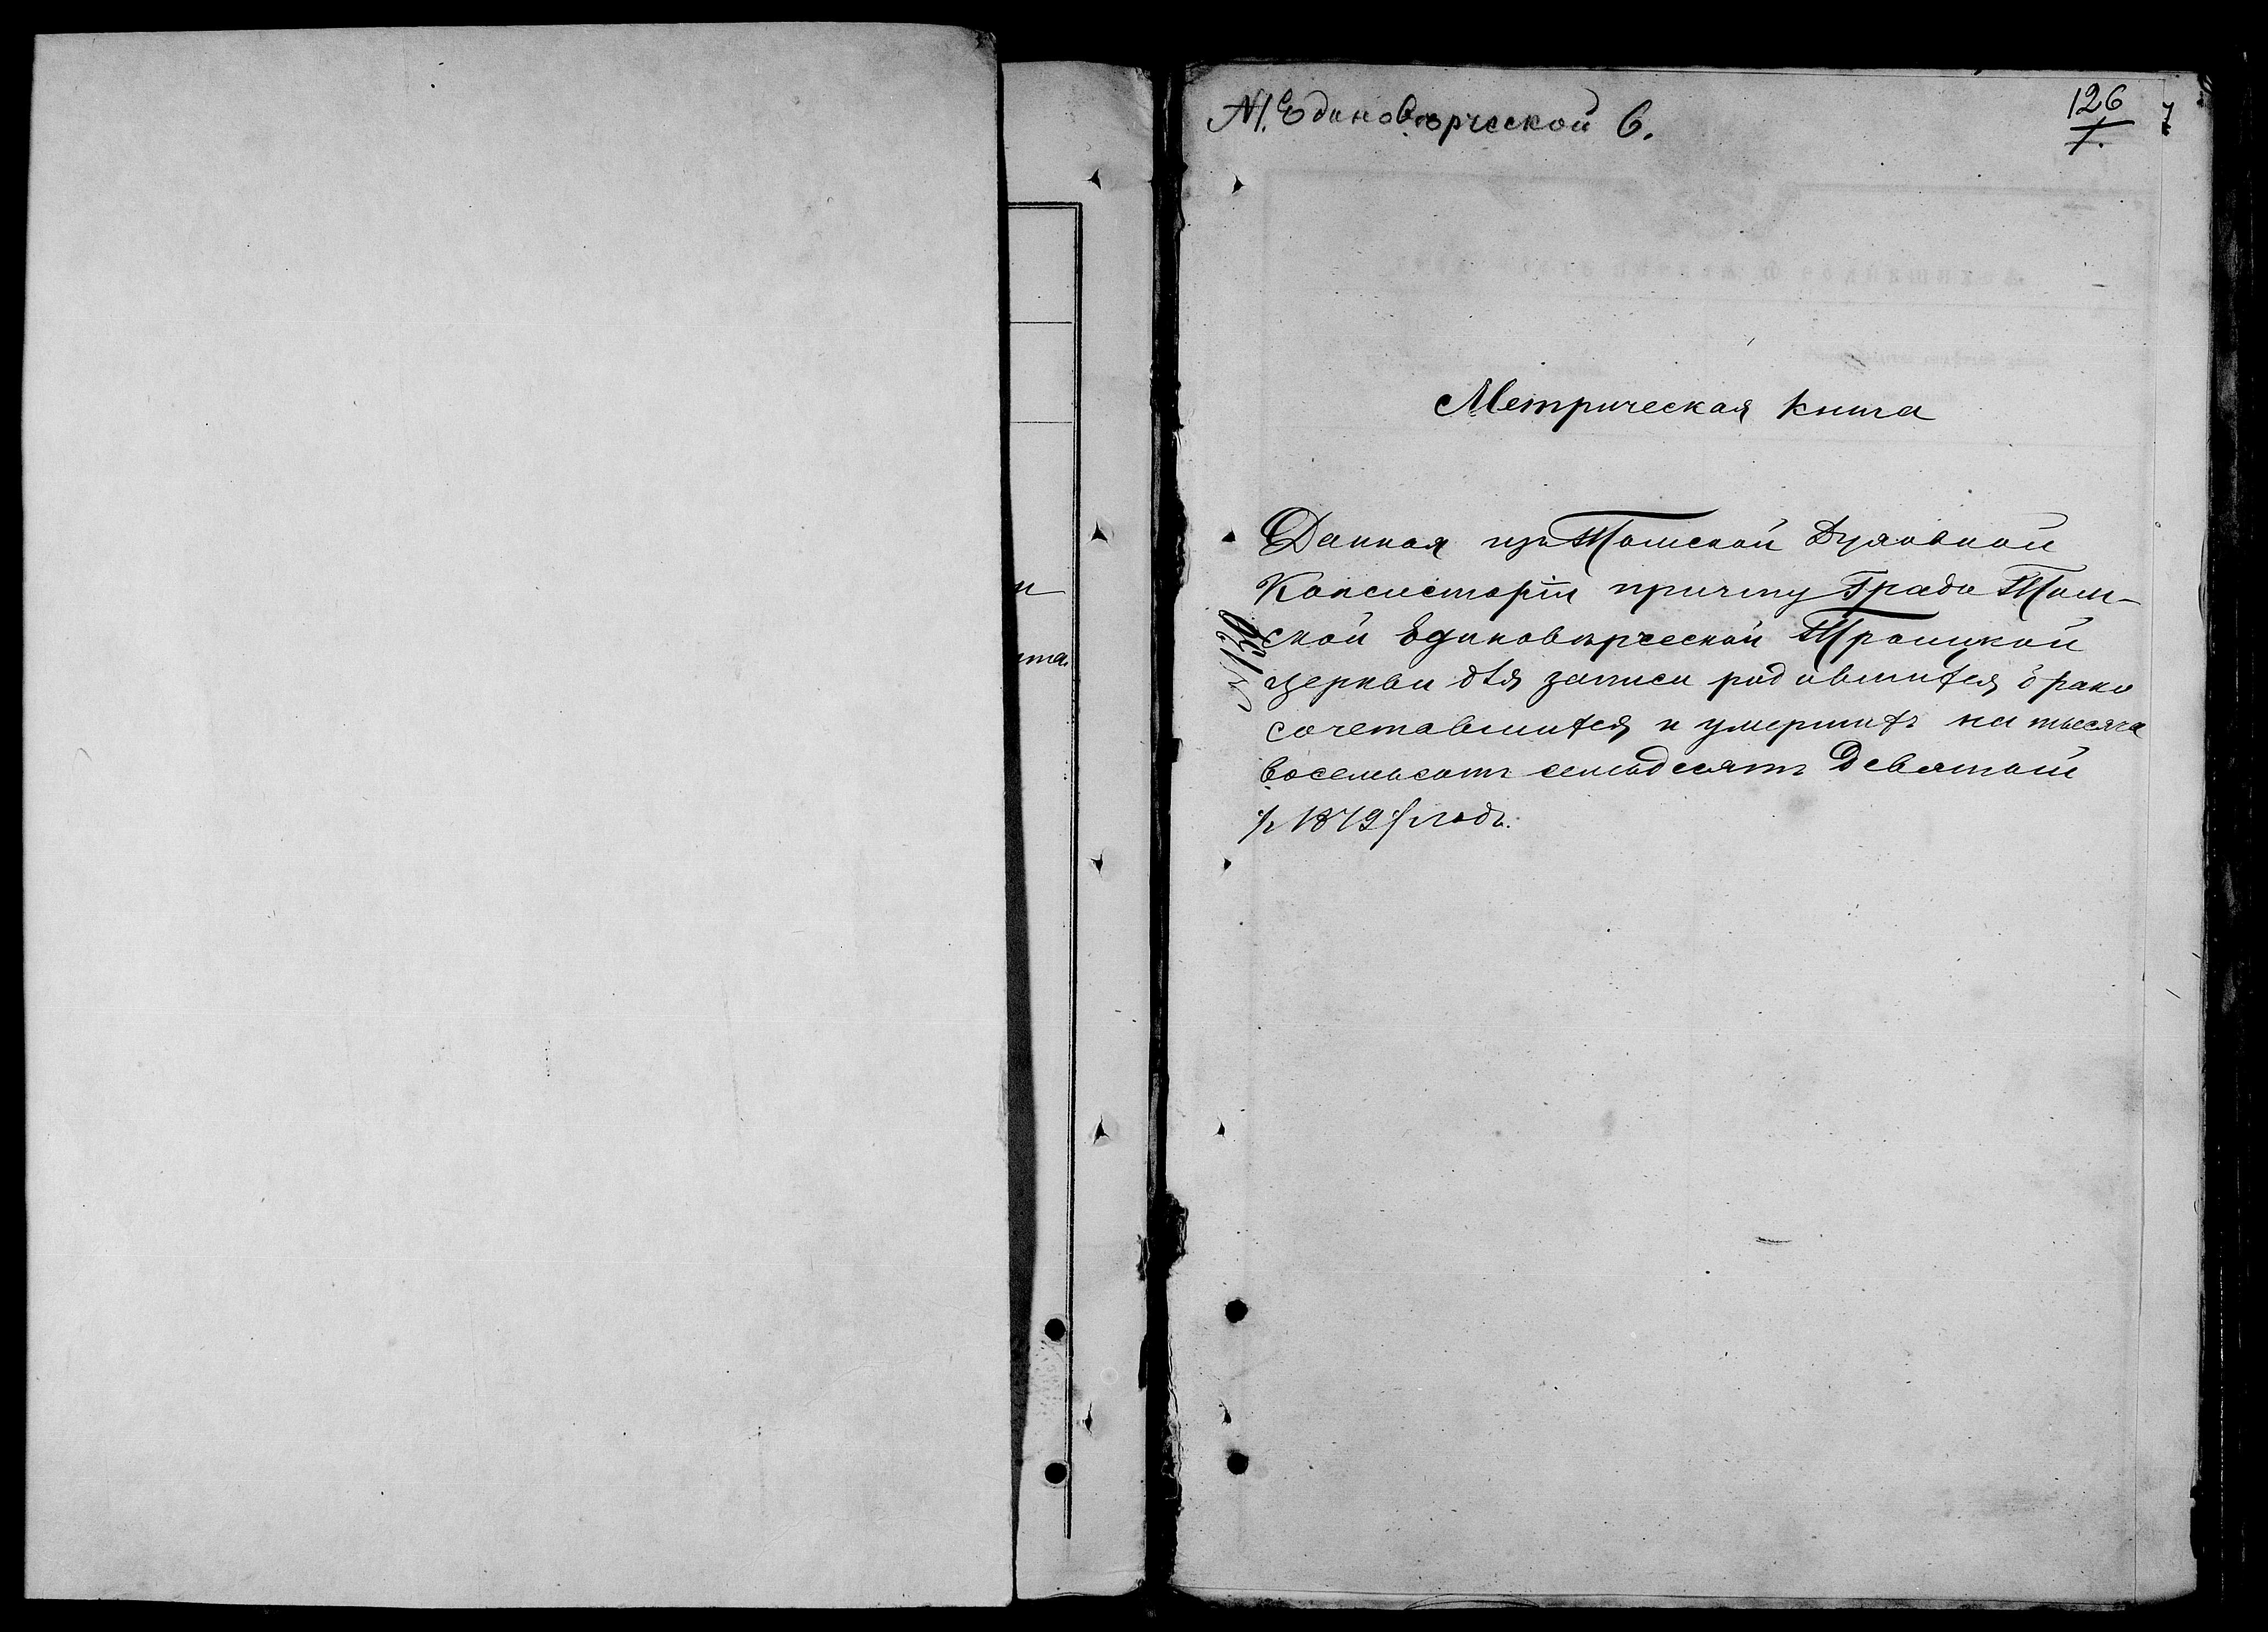 Единоверческой 6.
126
7
Метрическая книга
Данная изъ Томской Духовной
Консисторіи причту Градо Том-
ской Единовѣрческой Троицкой
церкви для записи родившихся брако
сочетавшихся и умершихъ на тысяча
восемьсотъ семьдесятъ Девятый
/: 1879 :/ годъ.